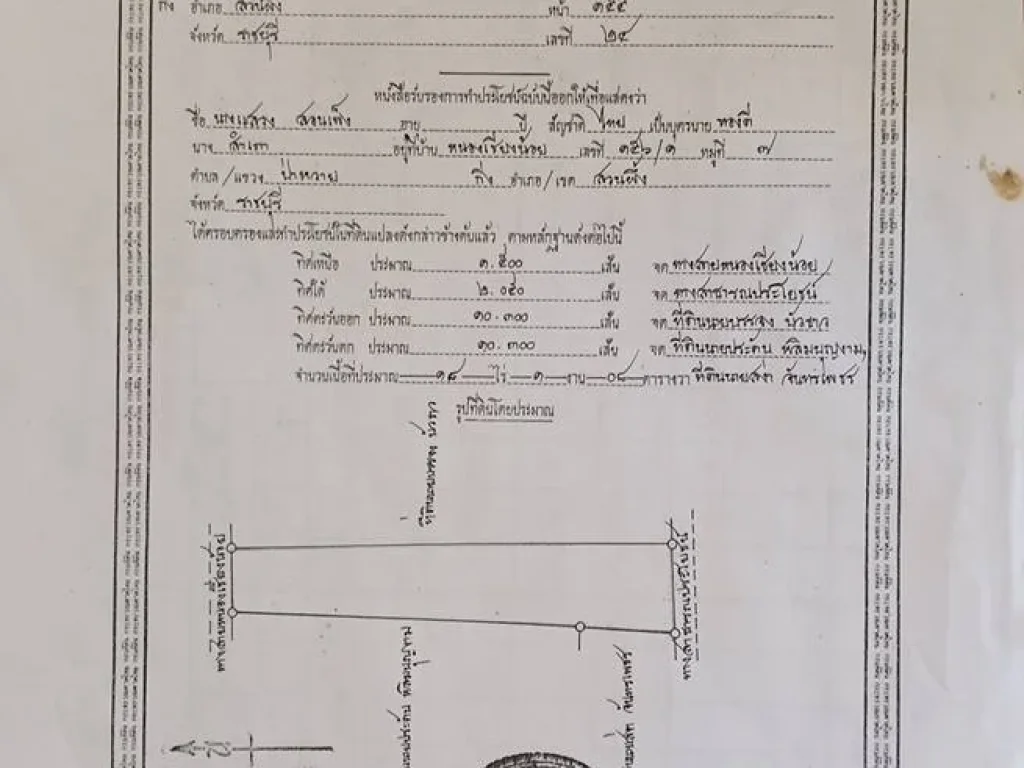 กิ่ง อำเภอ สวนผึ้ง หน้า ๑๕๔
จังหวัด ราชบุรี เลขที่ ๒๔
หนังสือรับรองการทำประโยชน์ฉบับนี้ออกให้เพื่อแสดงว่า
ชื่อ อายุ ปี สัญชาติ ไทย เป็นบุตรนาย ทองดี
นาง สำเภา อยู่ที่บ้าน หนองเชียงน้อย เลขที่ ๑๕๖/๑ หมู่ที่ ๗
ตำบล/แขวง ป่าหวาย กิ่ง อำเภอ/เขต สวนผึ้ง
จังหวัด ราชบุรี
ได้ครอบครองและทำประโยชน์ในที่ดินแปลงดังกล่าวข้างต้นแล้ว ตามหลักฐานดังต่อไปนี้
ทิศเหนือ ประมาณ ๑.๕๐๐ เส้น จด ทางสายหนองเชียงน้อย
ทิศใต้ ประมาณ ๒.๐๕๐ เส้น จด ทางสาธารณประโยชน์
ทิศตะวันออก ประมาณ ๑๐.๓๐๐ เส้น จด ที่ดินนายบรรจง บัวขาว
ทิศตะวันตก ประมาณ ๑๐.๓๐๐ เส้น จด ที่ดินนายประดัน พิลึมบุญงาม,
จำนวนเนื้อที่ประมาณ ๑๘ ไร่ ๑ งาน ๐๘ ตารางวา ที่ดินนายสง่า จันทร์เพชร
รูปที่ดินโดยประมาณ
ที่ดินนายบรรจง บัวขาว
ทางสายหนองเชียงน้อย
ทางสาธารณประโยชน์
นายประดัน พิลึมบุญงาม
จันทร์เพชร